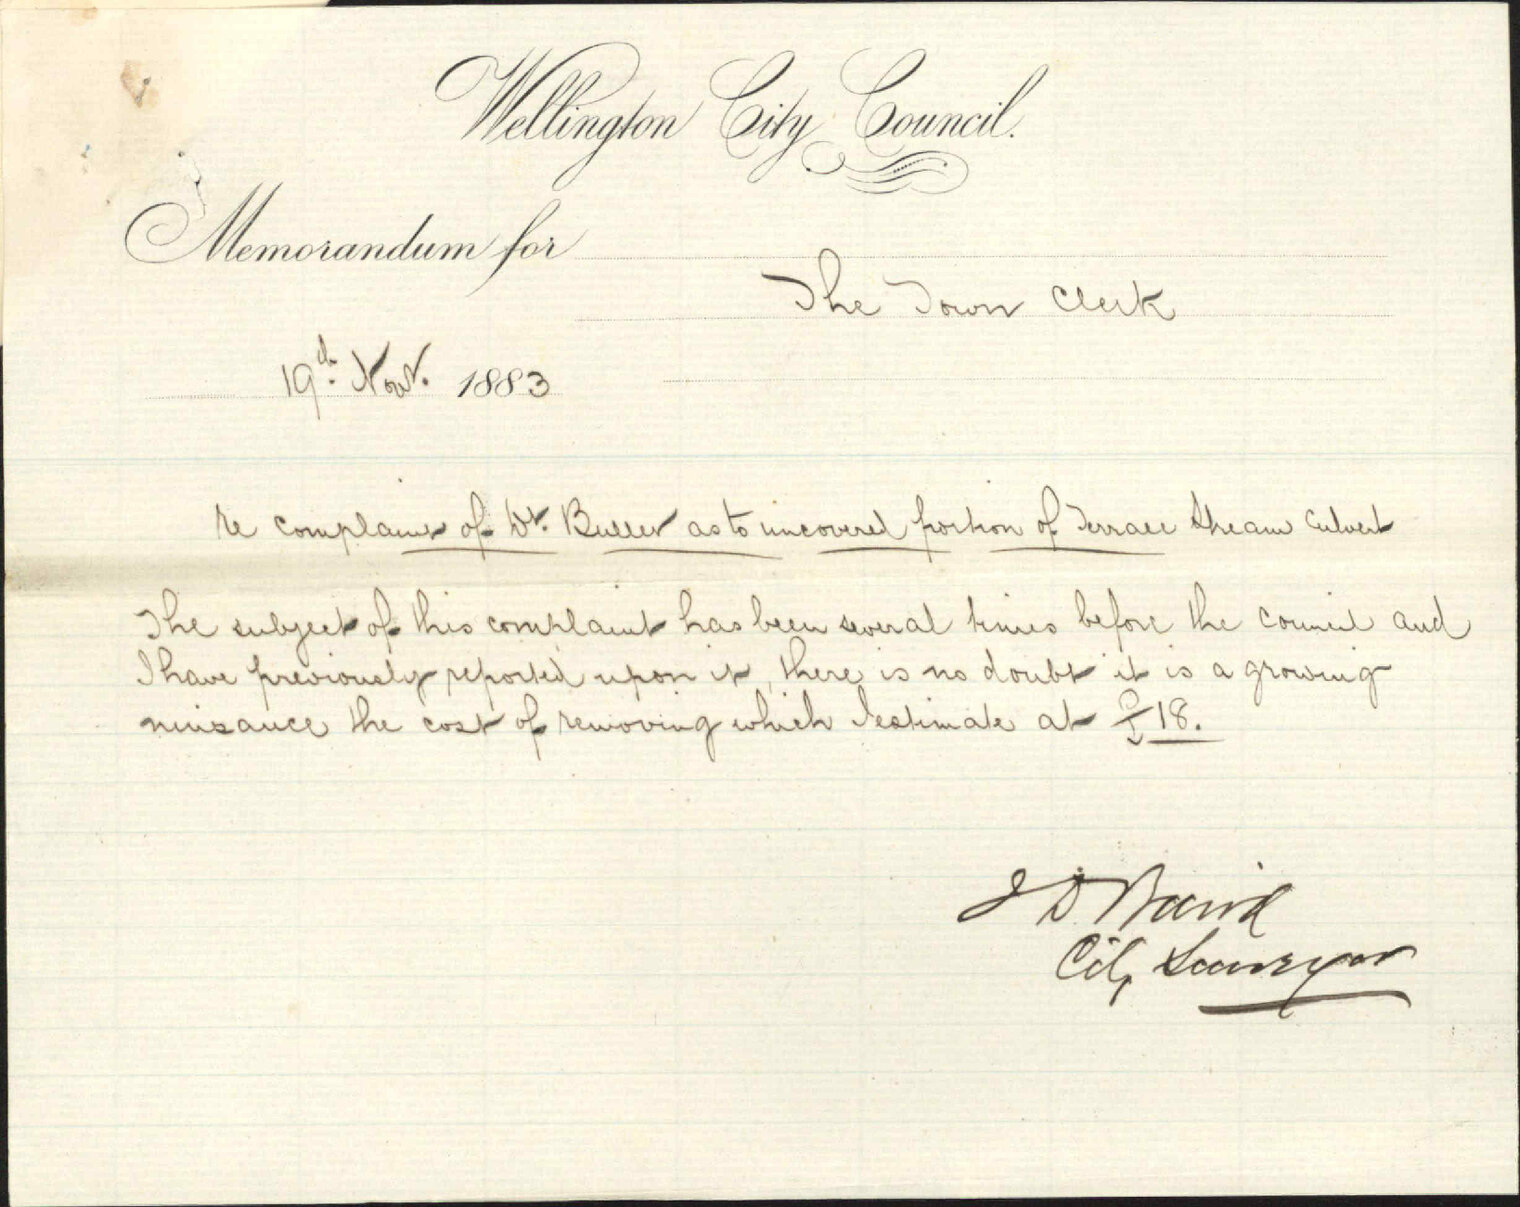 Wellington City Council.
Memorandum for
The Town Clerk
19th. Novr. 1883
re complaint of Dr. Buller as to uncovered portion of Terrace Stream Culvert
The subject of this complaint has been several times before the Council and
I have previously reported upon it, there is no doubt it is a growing
nuisance the cost of removing which I estimate at £18.
J D Baird
City Surveyor